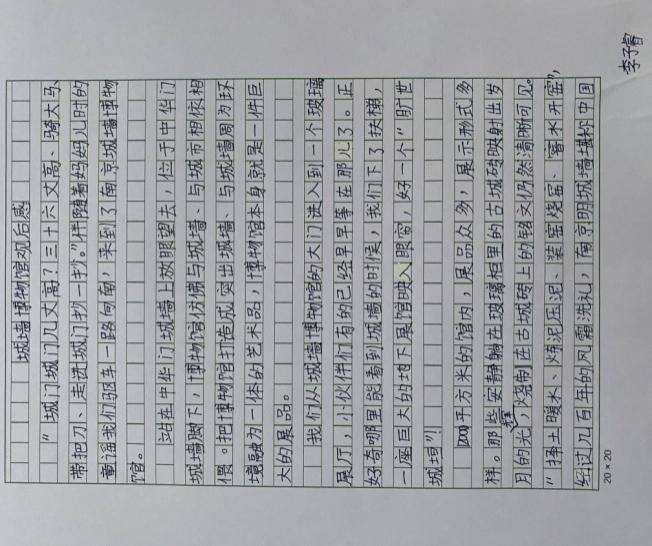 李子睿
城墙博物馆观后感
“城门城门几丈高?三十六丈高、骑大马、
带把刀、走进城门抄一抄。”伴随着妈妈儿时的
童谣我们驱车一路向南，来到了南京城墙博物
馆。
站在中华门城墙上放眼望去，位于中华门
城墙脚下，博物馆仿佛与城墙、与城市相依相
偎。把博物馆打造成突出城墙、与城墙周为环
境融为一体的艺术品，博物馆本身就是一件巨
大的展品。
我们从城墙博物馆的大门进入到一个玻璃
展厅，小伙伴们有的已经早早等在那儿了。正
好奇哪里能看到城墙的时候，我们下了扶梯，
一座巨大的地下展馆映入眼帘，好一个“旷世
城垣”!
2000平方米的馆内，展品众多，展示形式多
样。那些安静躺在玻璃柜里的古城砖映射出岁
月的光辉，烧制在古城砖上的铭文仍然清晰可见。
“择土暖水、炼泥压泥、装窑烧窑、窨水开窑”，
经过几百年的风霜洗礼，南京明城墙堪称中国
20×20